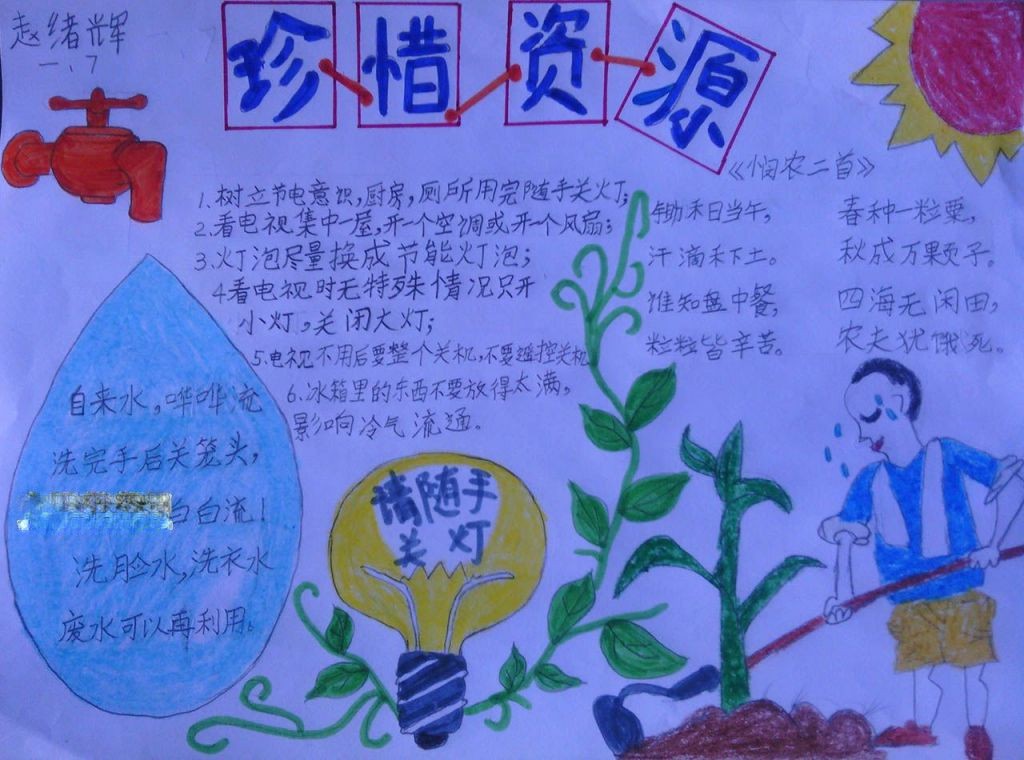 赵绪辉
一、7
珍惜资源
1.树立节电意识,厨房,厕所用完随手关灯;
2.看电视集中一屋,开一个空调或开一个风扇;
3.灯泡尽量换成节能灯泡;
4看电视时无特殊情况只开
小灯,关闭大灯;
5.电视不用后要整个关机,不要遥控关机
6.冰箱里的东西不要放得太满,
影响冷气流通。
《悯农二首》
锄禾日当午,
汗滴禾下土。
谁知盘中餐,
粒粒皆辛苦。
春种一粒粟,
秋成万颗子。
四海无闲田,
农夫犹饿死。
自来水,哗哗流
洗完手后关笼头,
白白流!
洗脸水,洗衣水
废水可以再利用。
请随手
关灯